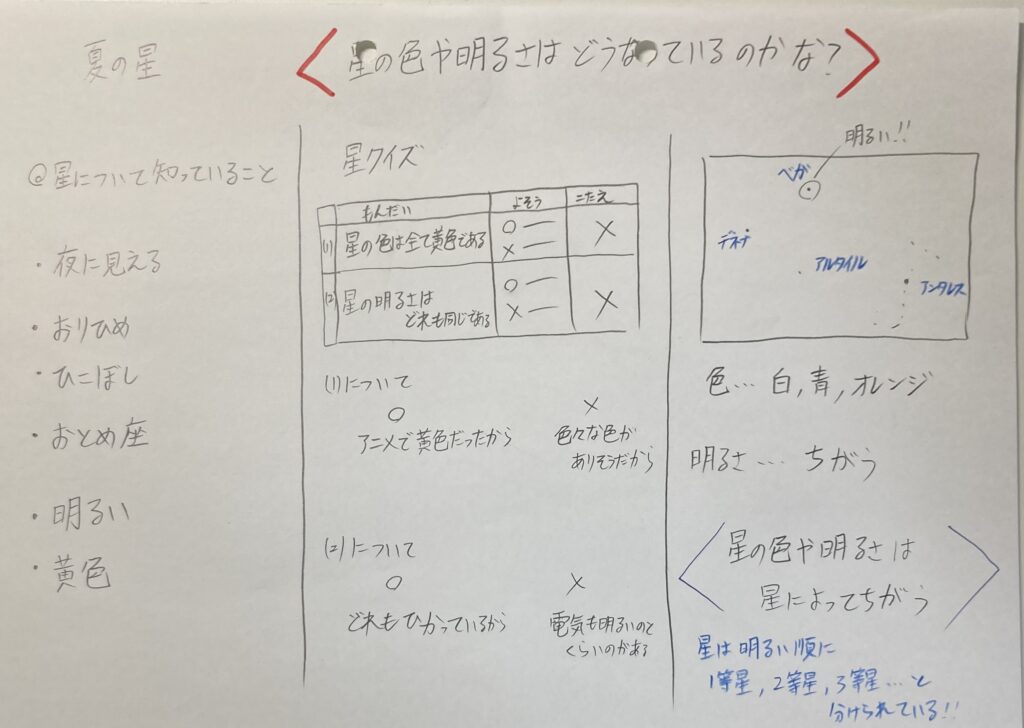 夏の星
星の色や明るさはどうなっているのかな?
@星について知っていること
・夜に見える
・おりひめ
・ひこぼし
・おとめ座
・明るい
・黄色
星クイズ
もんだい よそう こたえ
(1) 星の色は全て黄色である ○ー ×
×ー
(2) 星の明るさは ○ー ×
どれも同じである ×ー
(1)について
○ ×
アニメで黄色だったから 色々な色が
ありそうだから
(2)について
○ ×
どれもひかっているから 電気も明るいのと
くらいのがある
明るい!!
ベガ
デネブ
アルタイル
アンタレス
色… 白,青,オレンジ
明るさ… ちがう
星の色や明るさは
星によってちがう
星は明るい順に
1等星,2等星,3等星…と
分けられている!!